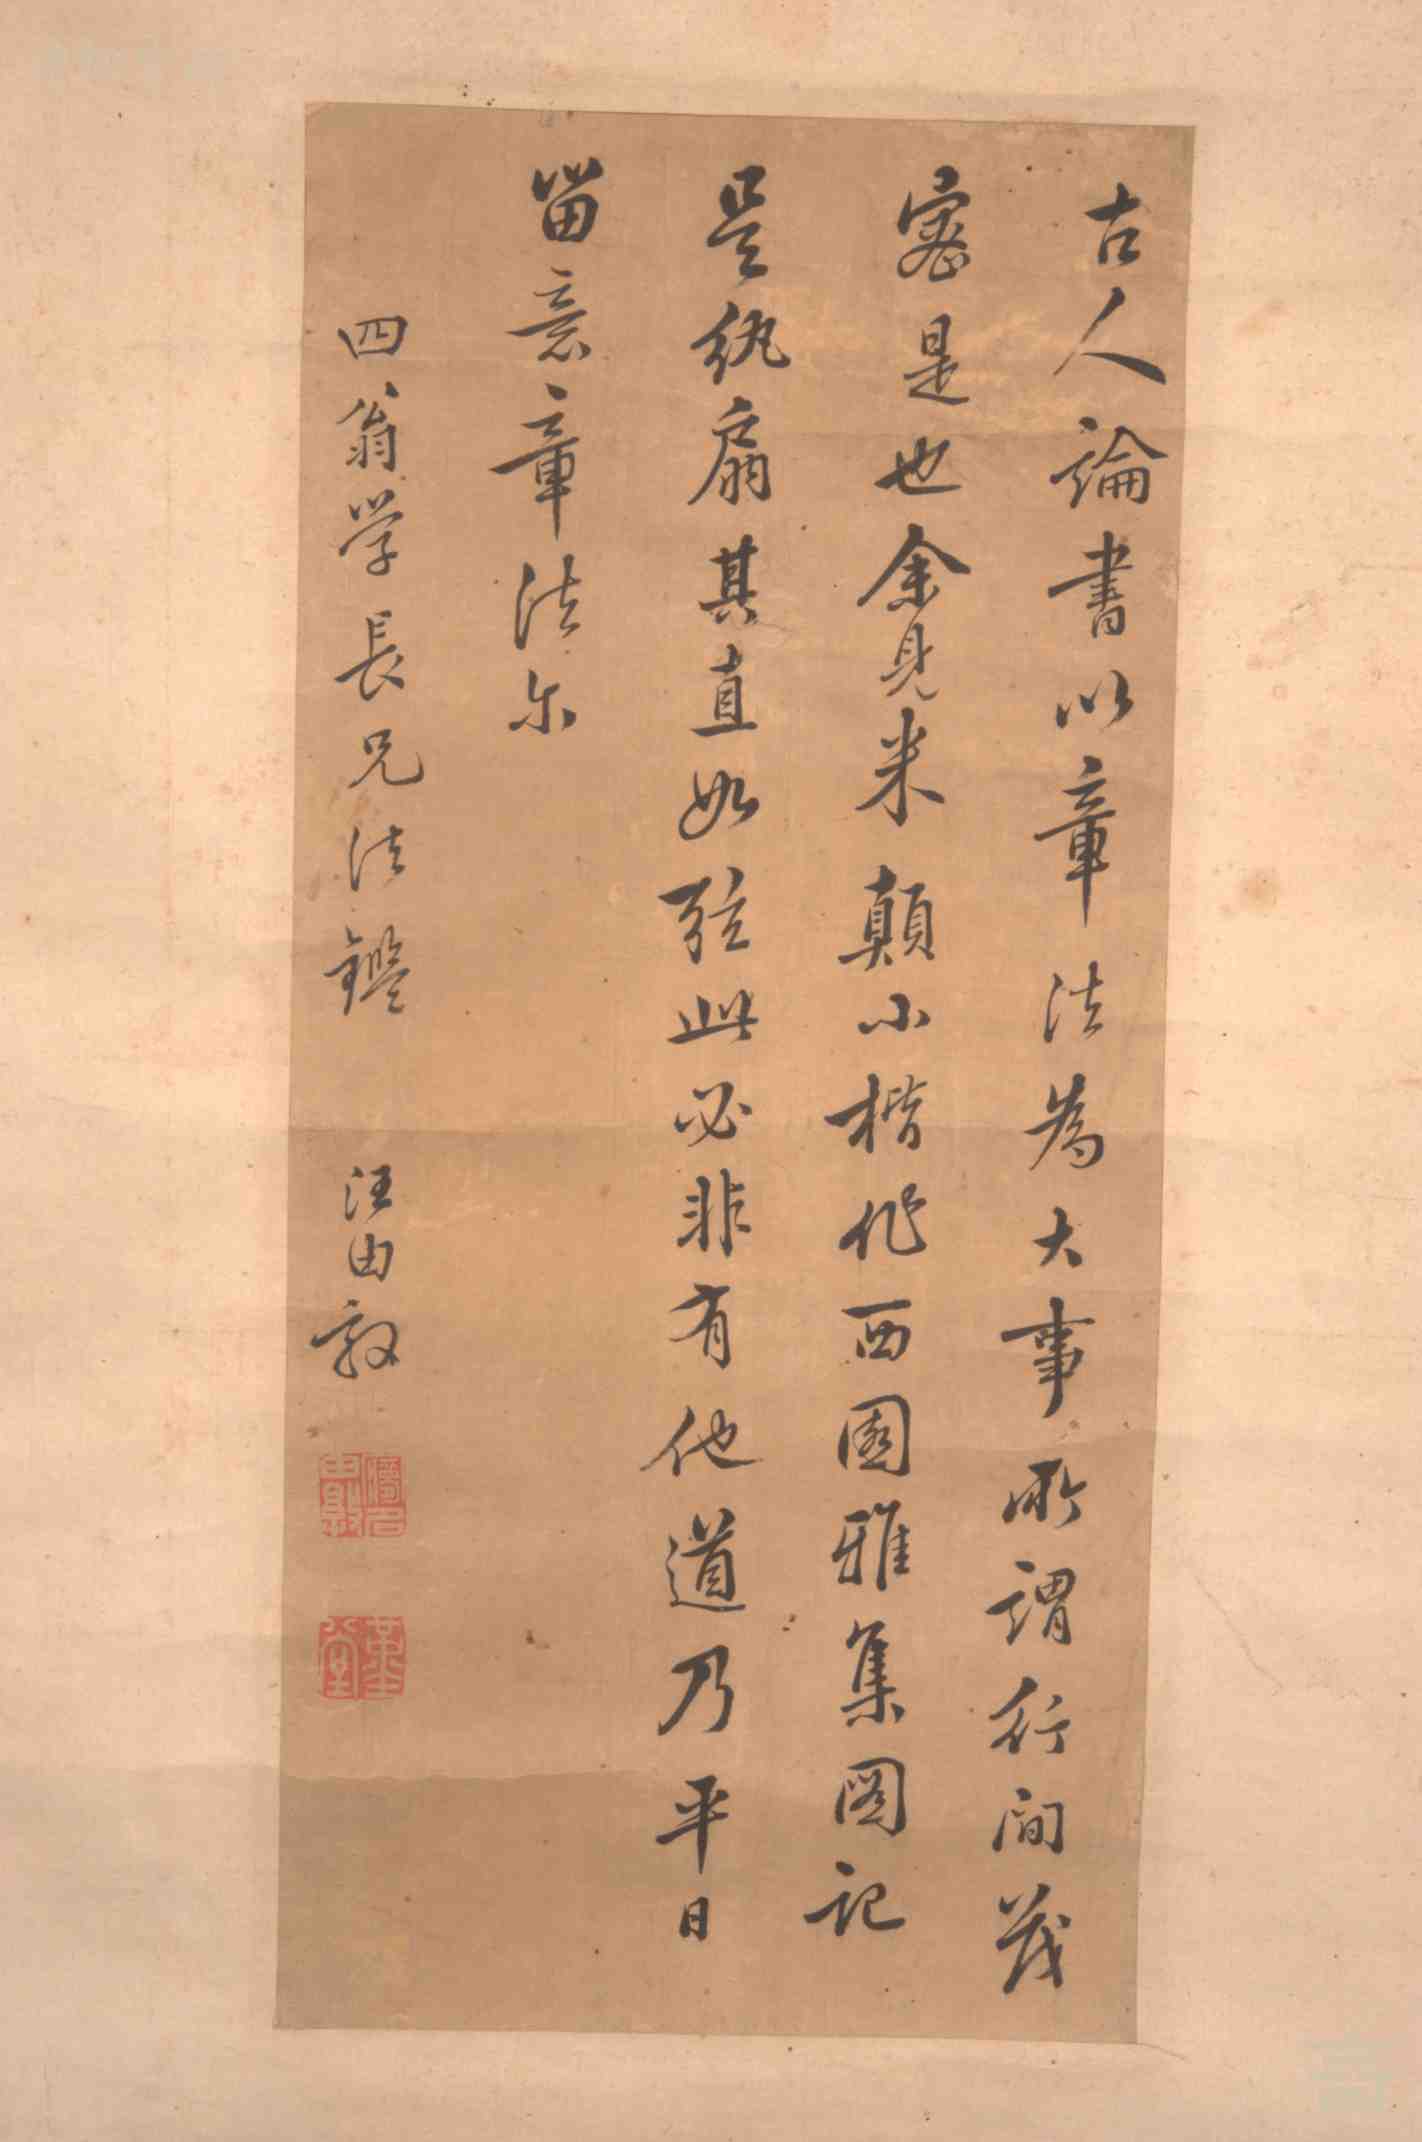 古人論書以章法為大事所謂行間茂
密是也余見米顛小楷作西園雅集圖記
是紈扇其直如弦此必非有他道乃平日
留意章法尔
四翁学長兄法鑑
汪由敦